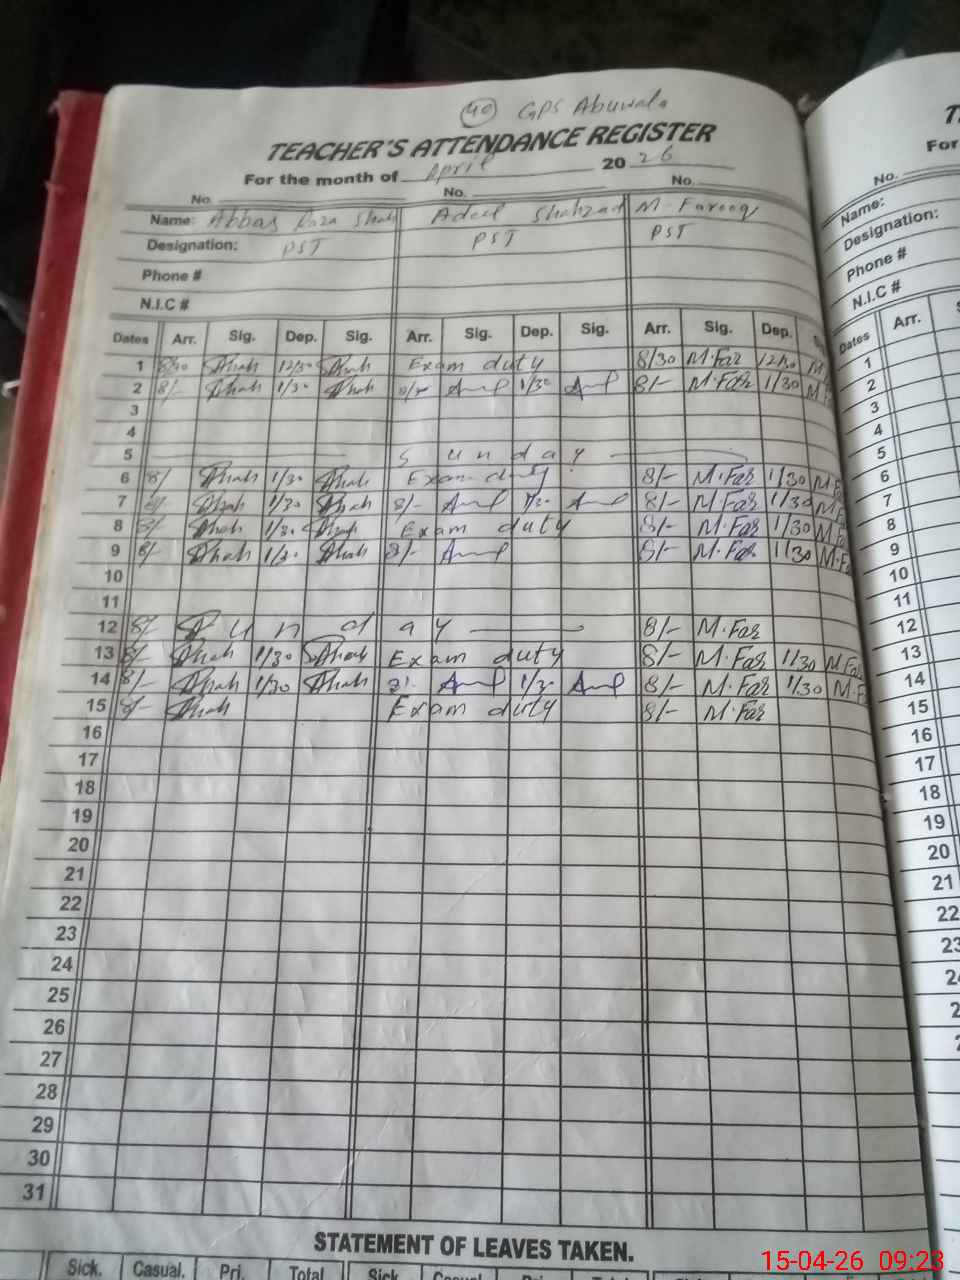 40 GPS Abuwala
TEACHER'S ATTENDANCE REGISTER
For the month of April 20 26
No. No. No.
Name: Abbas Raza Shah Adeel Shahzad M. Farooq
Designation: PST PST PST
Phone #
N.I.C #
Dates Arr. Sig. Dep. Sig. Arr. Sig. Dep. Sig. Arr. Sig. Dep.
1 8/30 Shah 12/30 Shah Exam duty 8/30 M.Far 12/30 M.
2 8/- Shah 1/30 Shah 1/30 8/- M.Far 1/30 M.Fa
3
4
5 Sunday
6 8/ Shah 1/30 Shah Exam duty 8/- M.Far 1/30 M.F
7 8/- Shah 1/30 Shah 8/- 1/30 8/- M.Far 1/30 M.F
8 8/- Shah 1/30 Shah Exam duty 8/- M.Far 1/30 M.F
9 8/- Shah 1/30 Shah 8/- 8/- M.Far 1/30 M.Fa
10
11
12 8/- Sunday 8/- M.Far
13 8/- Shah 1/30 Shah Exam duty 8/- M.Far 1/30 M.Fa
14 8/- Shah 1/30 Shah 8/- 1/30 8/- M.Far 1/30 M.F
15 8/- Shah Exam duty 8/- M.Far
16
17
18
19
20
21
22
23
24
25
26
27
28
29
30
31
STATEMENT OF LEAVES TAKEN.
Sick. Casual. Pri. Total Sick
For
No.
Name:
Designation:
Phone #
N.I.C #
Dates Arr.
1
2
3
4
5
6
7
8
9
10
11
12
13
14
15
16
17
18
19
20
21
22
15-04-26 09:23